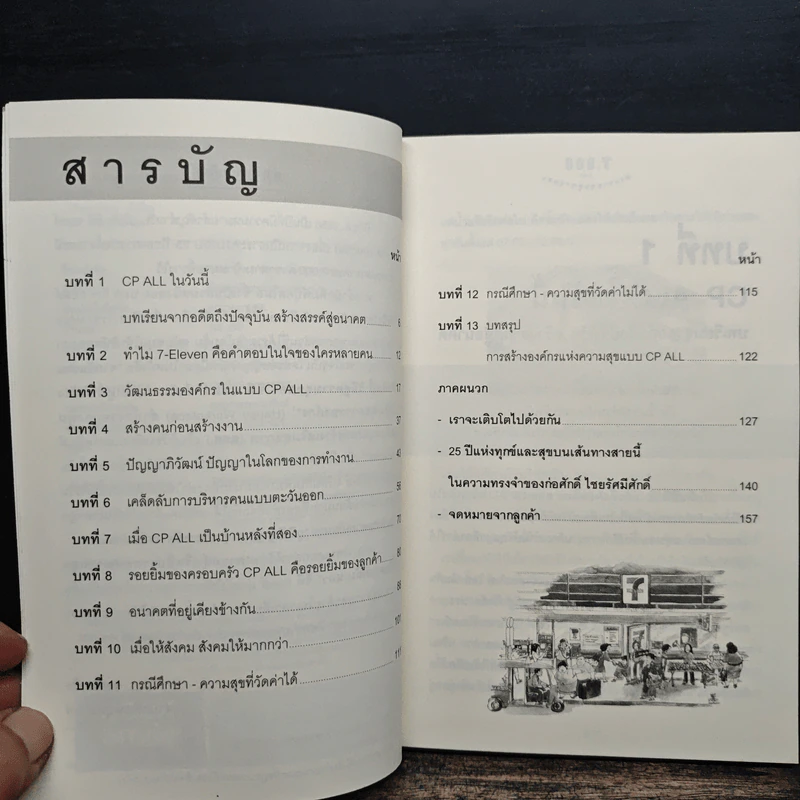 สารบัญ
หน้า
บทที่ 1 CP ALL ในวันนี้
บทเรียนจากอดีตถึงปัจจุบัน สร้างสรรค์สู่อนาคต 6
บทที่ 2 ทำไม 7-Eleven คือคำตอบในใจของใครหลายคน 12
บทที่ 3 วัฒนธรรมองค์กร ในแบบ CP ALL 17
บทที่ 4 สร้างคนก่อนสร้างงาน 37
บทที่ 5 ปัญญาภิวัฒน์ ปัญญาในโลกของการทำงาน 43
บทที่ 6 เคล็ดลับการบริหารคนแบบตะวันออก 56
บทที่ 7 เมื่อ CP ALL เป็นบ้านหลังที่สอง
บทที่ 8 รอยยิ้มของครอบครัว CP ALL คือรอยยิ้มของลูกค้า 80
บทที่ 9 อนาคตที่อยู่เคียงข้างกัน 88
บทที่ 10 เมื่อให้สังคม สังคมให้มากกว่า 101
บทที่ 11 กรณีศึกษา - ความสุขที่วัดค่าได้
หน้า
บทที่ 12 กรณีศึกษา - ความสุขที่วัดค่าไม่ได้ 115
บทที่ 13 บทสรุป
การสร้างองค์กรแห่งความสุขแบบ CP ALL 122
ภาคผนวก
- เราจะเติบโตไปด้วยกัน 127
- 25 ปีแห่งทุกข์และสุขบนเส้นทางสายนี้
ในความทรงจำของก่อศักดิ์ ไชยรัศมีศักดิ์ 140
- จดหมายจากลูกค้า 157